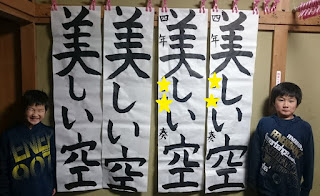 美しい空
四年 奏
美しい空
美しい空
美しい空
四年 奏